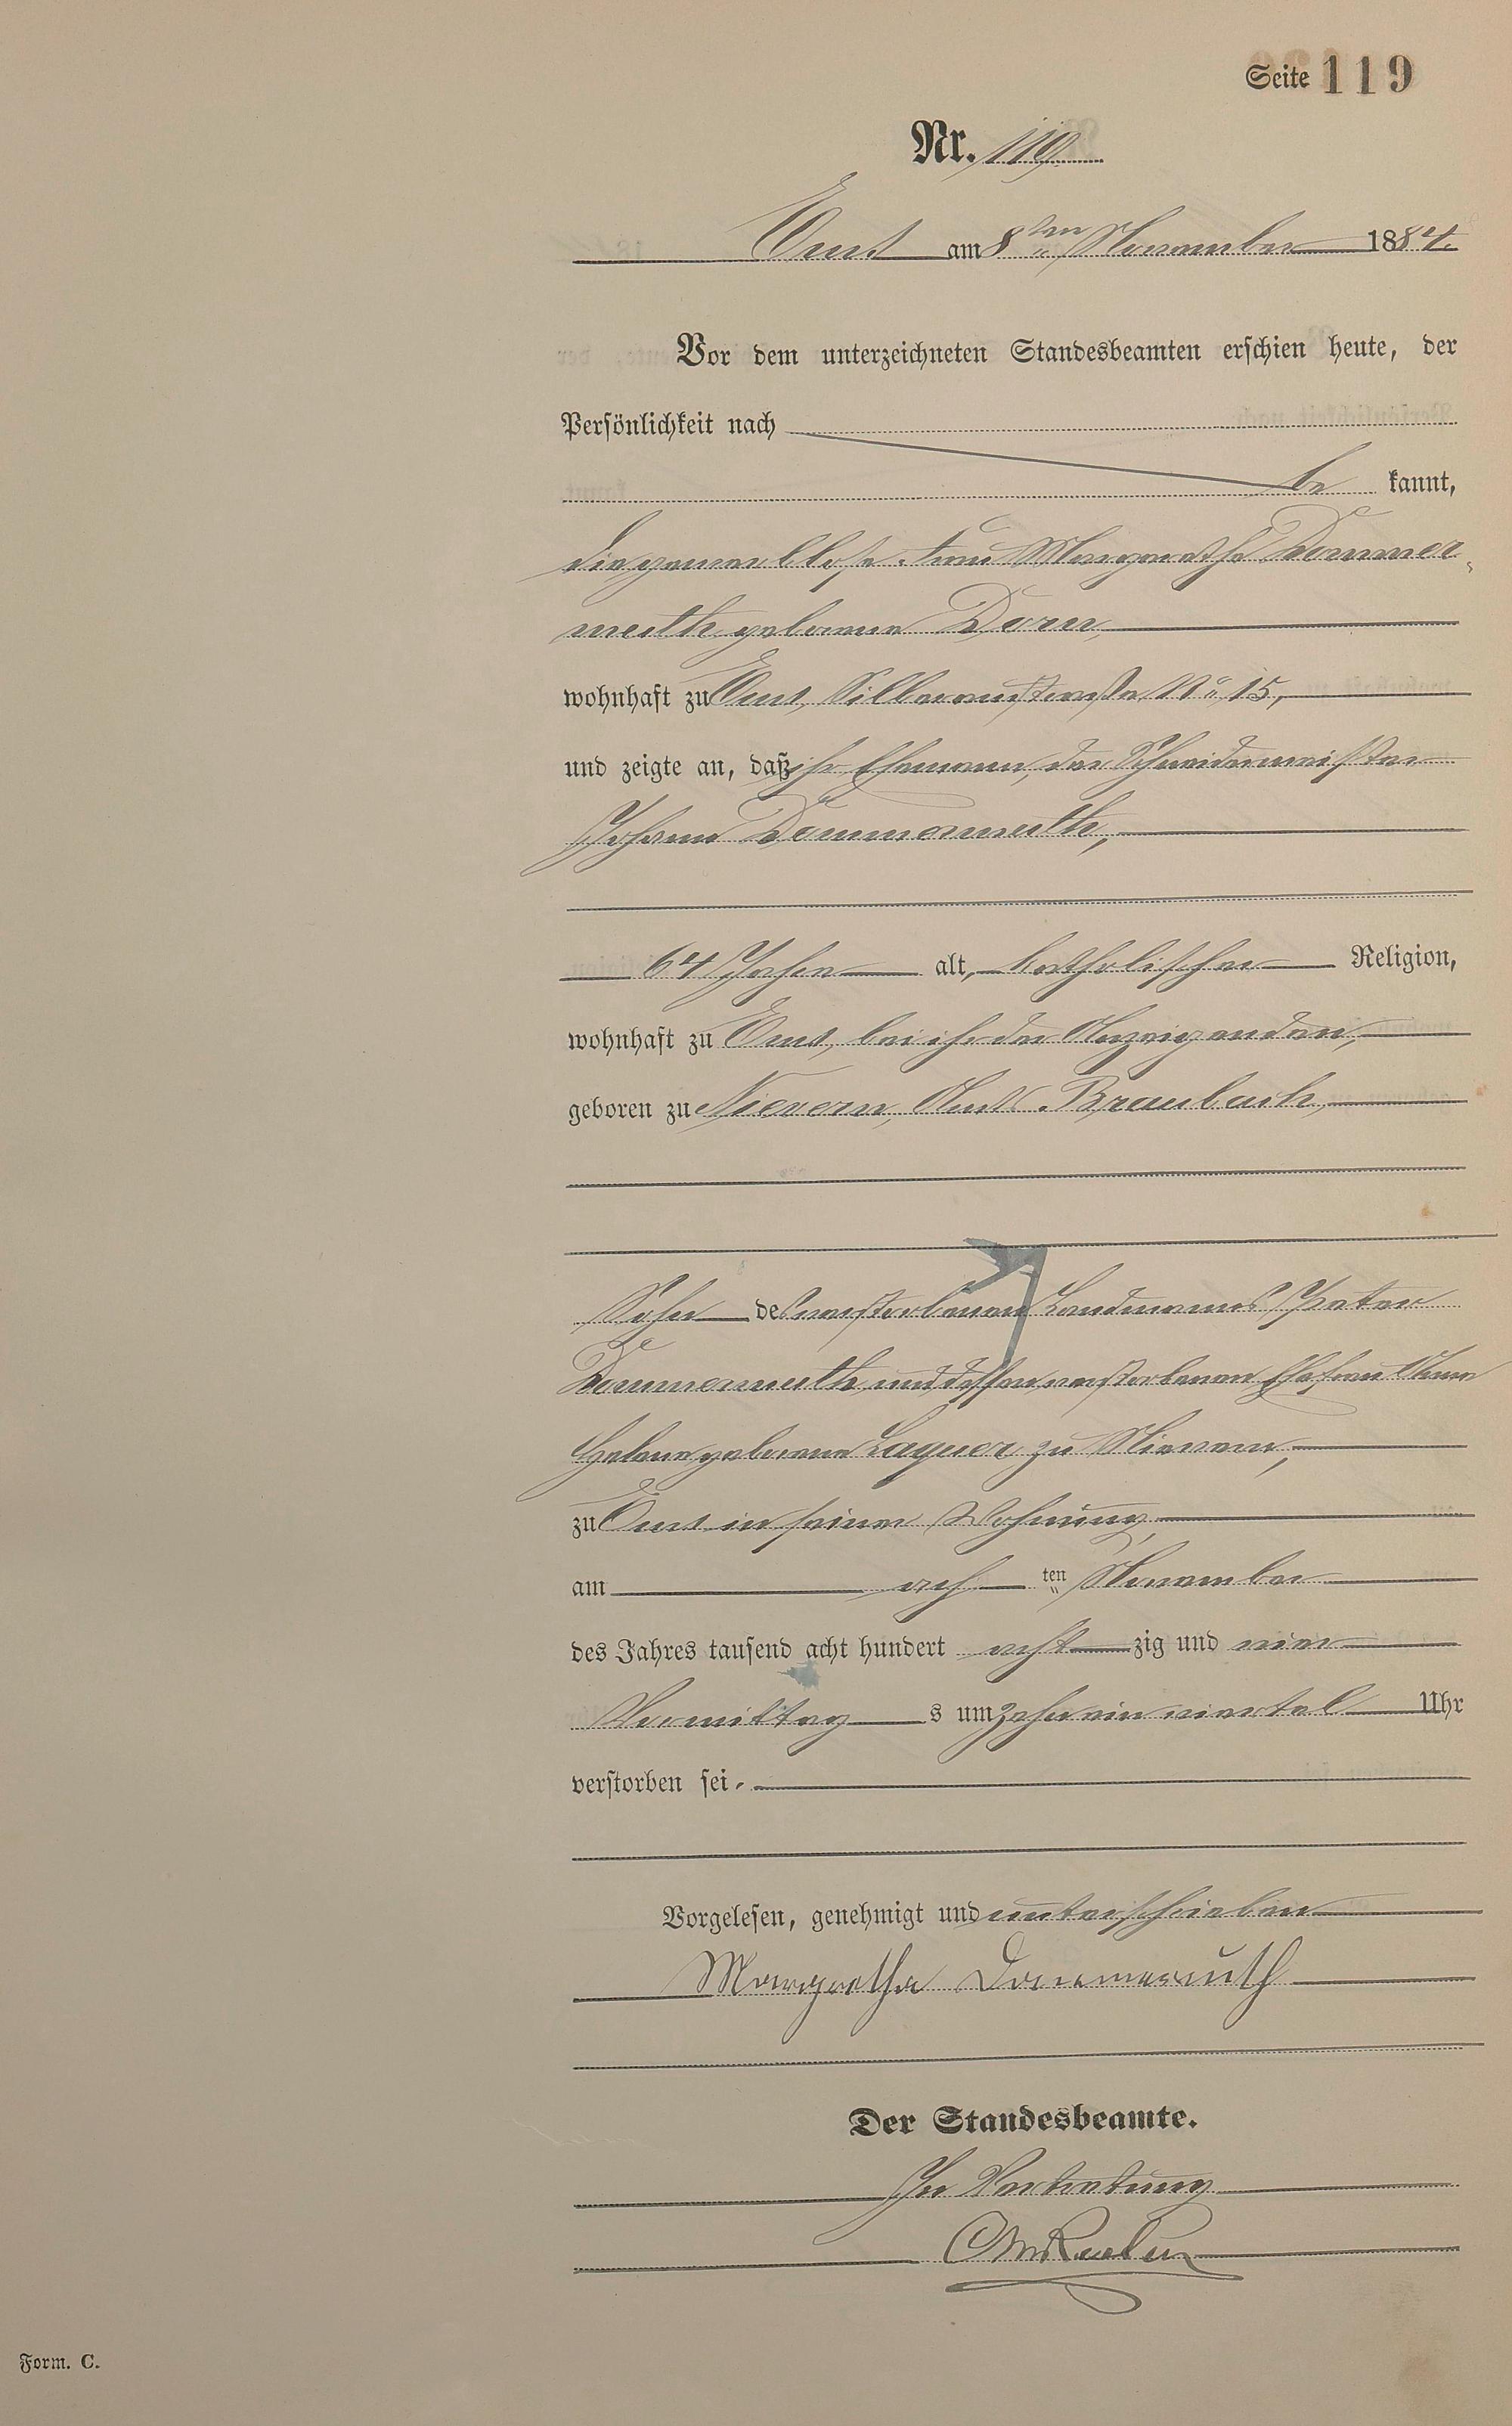 Seite 119
Nr. 119
Ems am 8ten November 1884.
Vor dem unterzeichneten Standesbeamten erschien heute, der
Persönlichkeit nach
be kannt,
die gewerblose Frau Margarethe Dommer-
muth geborene Dorn,
wohnhaft zu Ems, Silberaustraße No 15,
und zeigte an, daß ihr Ehemann, der Schneidermeister
Johann Dommermuth,
64 Jahre alt, katholischer Religion,
wohnhaft zu Ems, bei ihr der Anzeigenden,
geboren zu Nievern, Amts Braubach,
Sohn des verstorbenen Landmanns Peter
Dommermuth und dessen verstorbenen Ehefrau Anna
Helene geborene Layuer zu Nievern,
zu Ems in seiner Wohnung,
am ach ten November
des Jahres tausend acht hundert acht zig und vier
Vormittag s um zehn ein viertel Uhr
verstorben sei.
Vorgelesen, genehmigt und unterschrieben
Margretha Dommermuth
Der Standesbeamte.
In Vertretung
Form. C.